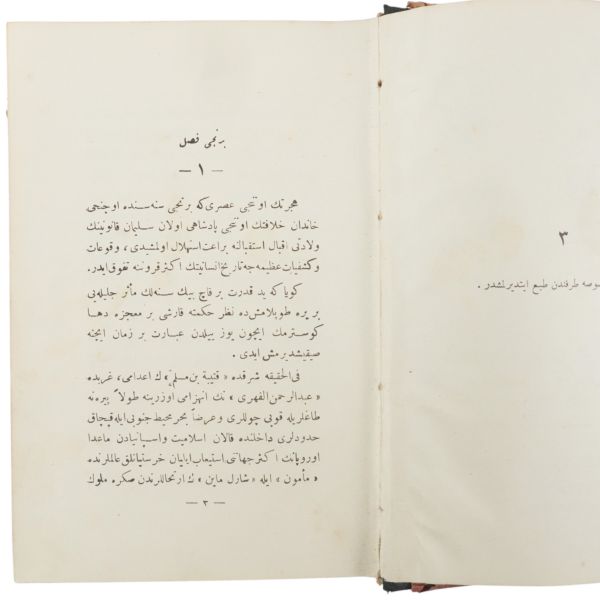 برنجی فصل
— ١ —
هجرتك اوننجی عصری كه برنجی سنه سنده اوچنجی
خاندان خلافتك اوننجی پادشاهی اولان سلیمان قانونینك
ولادتی اقبال استقبالنه براعت استهلال اولمشیدی، وقوعات
وكشفیات عظیمه جه تاریخ انسانیتك اكثر قروننه تفوق ایدر.
كویا كه ید قدرت بر قاچ بیك سنه لك مآثر جلیله یی
بریره طوپلامش ده نظر حكمته قارشی بر معجزه دها
كوسترمك ایچون یوز ییلدن عبارت بر زمان ایچنه
صیقیشدیرمش ایدی.
فی الحقیقه شرقده «قتیبة بن مسلم» ك اعدامی، غربده
«عبدالرحمن الفهری» نك انهزامی اوزرینه طولاً پیرنه
طاغلریله قوبی چوللری وعرضاً بحر محیط جنوبی ایله قپچاق
حدودلری داخلنده قالان اسلامیت واسپانیادن ماعدا
اوروپانك اكثر جهاتنی استیعاب ایلیان خرستیانلق عالملرنده
«مأمون» ایله «شارل ماین» ك ارتحاللرندن صكره ملوك
— ٣ —
٣
طرفندن طبع ایتدیرلمشدر.